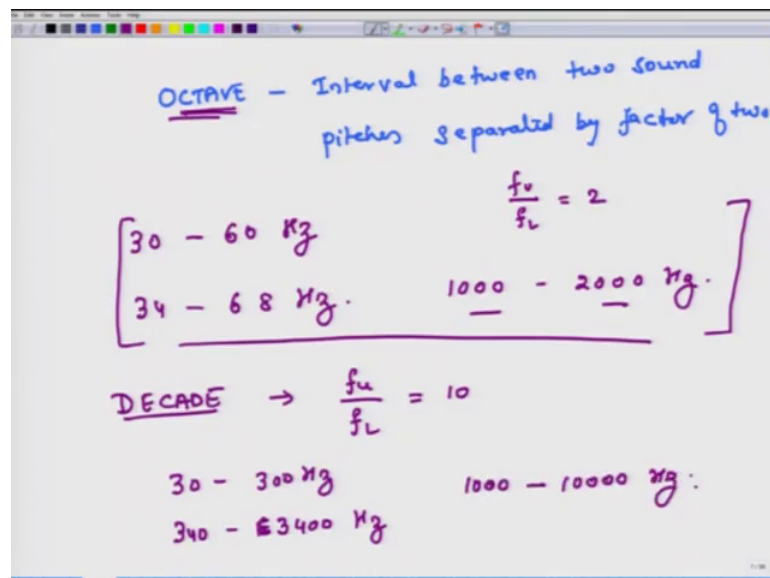 OCTAVE – Interval between two sound
pitches separated by factor of two
fu/fL = 2
30 – 60 Hz
34 – 68 Hz. 1000 – 2000 Hz.
DECADE → fu/fL = 10
30 – 300 Hz 1000 – 10000 Hz.
340 – 3400 Hz